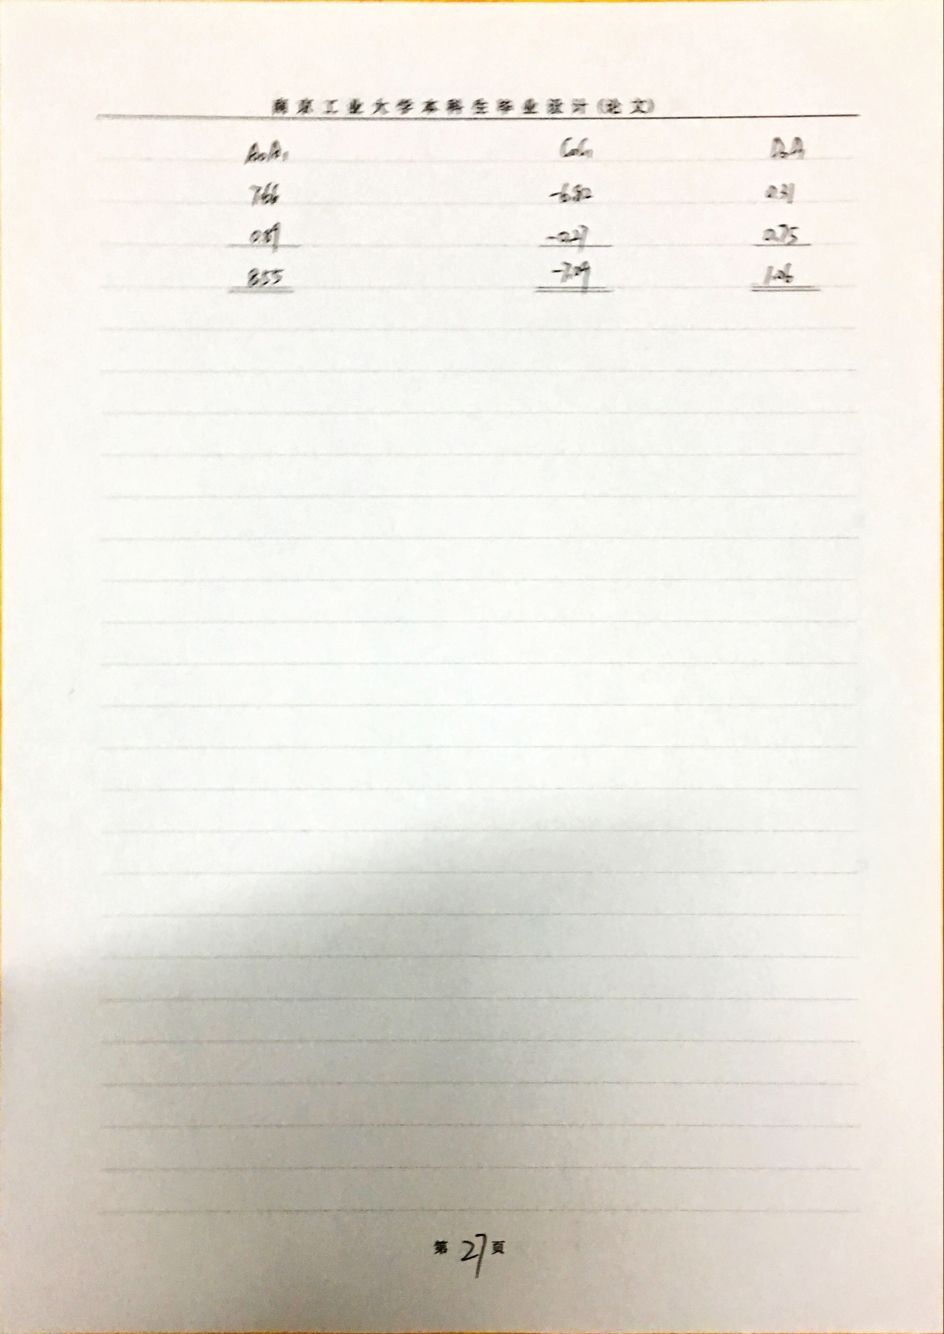 南京工业大学本科生毕业设计(论文)
A₀A₁ C₀C₁ D₀D₁
7.66 -6.82 0.31
0.89 -0.27 0.75
8.55 -7.09 1.06
第 27 页